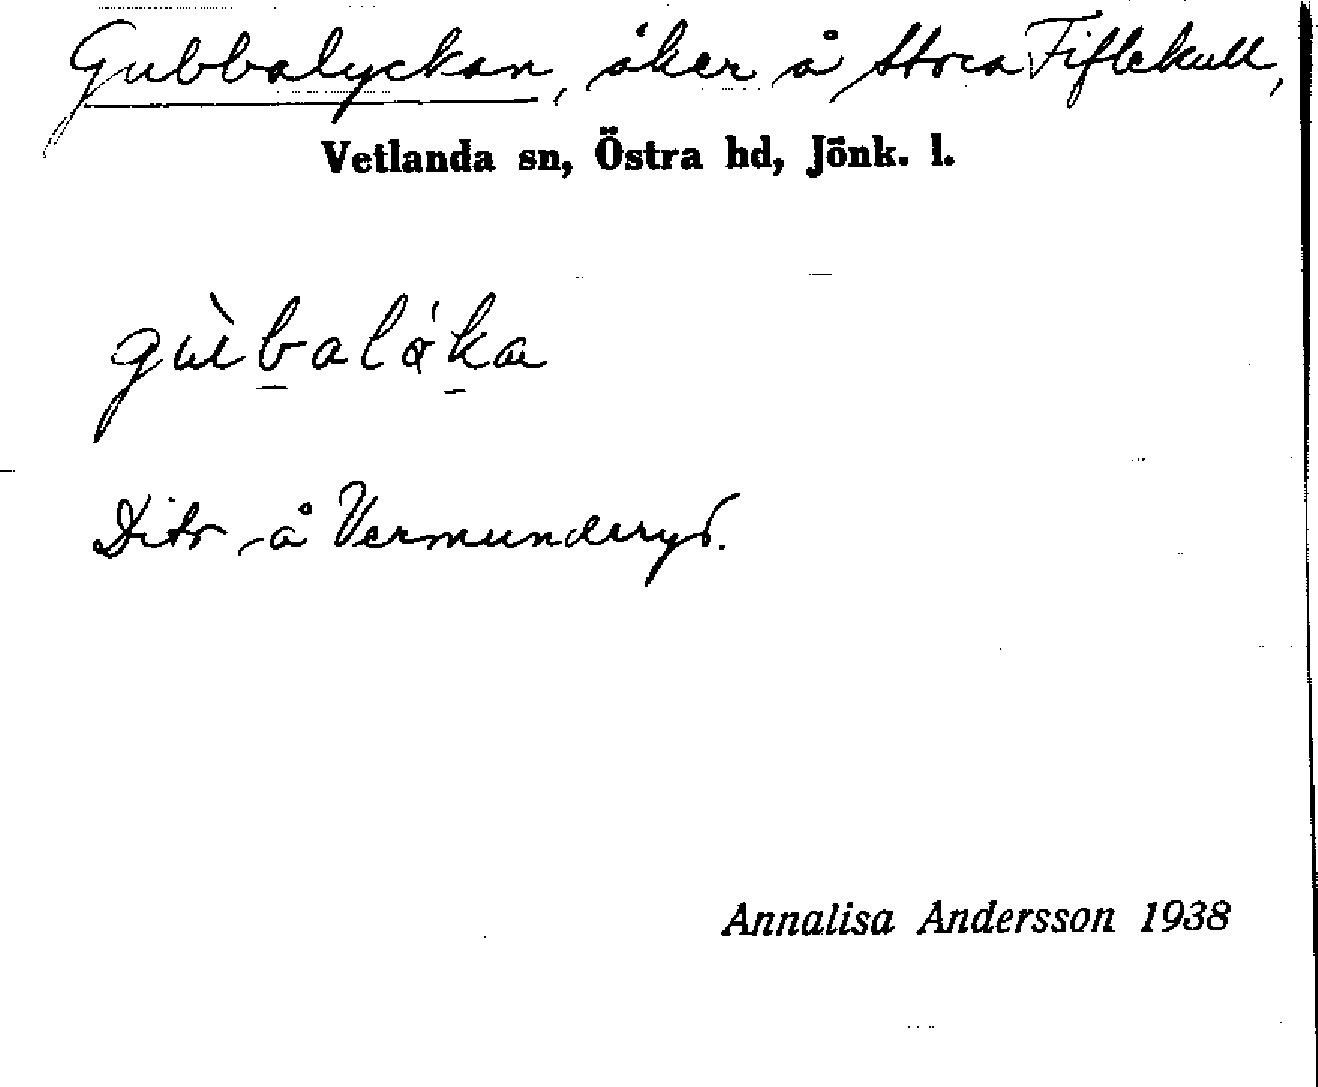 Gubbalyckan, åker å Stora Fiflekull,
Vetlanda sn, Östra hd, Jönk. l.
Dito å Vermunderyd.
Annalisa Andersson 1938